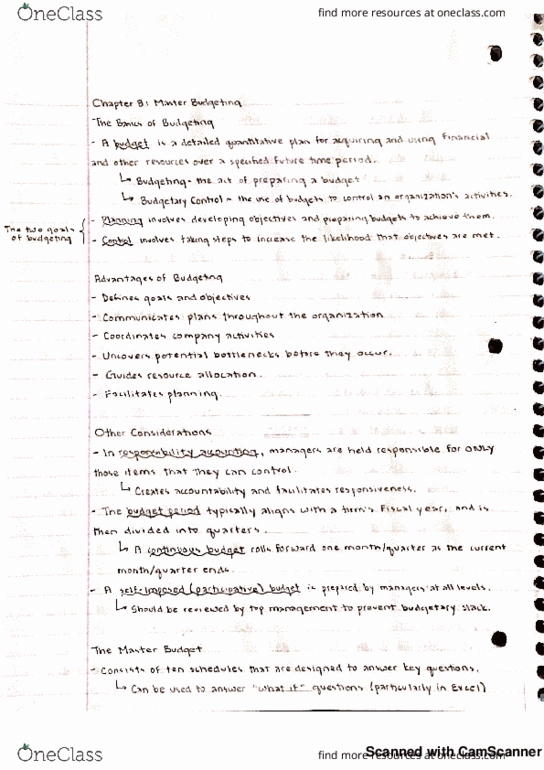 OneClass
find more resources at oneclass.com
Chapter 8: Master Budgeting
The Basics of Budgeting
- A budget is a detailed quantitative plan for acquiring and using financial
and other resources over a specified future time period.
↳ Budgeting - the act of preparing a budget
↳ Budgetary Control - the use of budgets to control an organization's activities.
The two goals of budgeting {
- Planning involves developing objectives and preparing budgets to achieve them.
- Control involves taking steps to increase the likelihood that objectives are met.
Advantages of Budgeting
- Defines goals and objectives
- Communicates plans throughout the organization
- Coordinates company activities
- Uncovers potential bottlenecks before they occur.
- Guides resource allocation.
- Facilitates planning.
Other Considerations
- In responsibility accounting, managers are held responsible for ONLY
those items that they can control.
↳ Creates accountability and facilitates responsiveness.
- The budget period typically aligns with a firm's fiscal year, and is
then divided into quarters.
↳ A continuous budget rolls forward one month/quarter as the current
month/quarter ends.
- A self-imposed (participative) budget is prepared by managers at all levels.
↳ Should be reviewed by top management to prevent budgetary slack.
The Master Budget
- Consists of ten schedules that are designed to answer key questions.
↳ Can be used to answer "what if" questions (particularly in Excel)
OneClass
find more resources at oneclass.com
Scanned with CamScanner